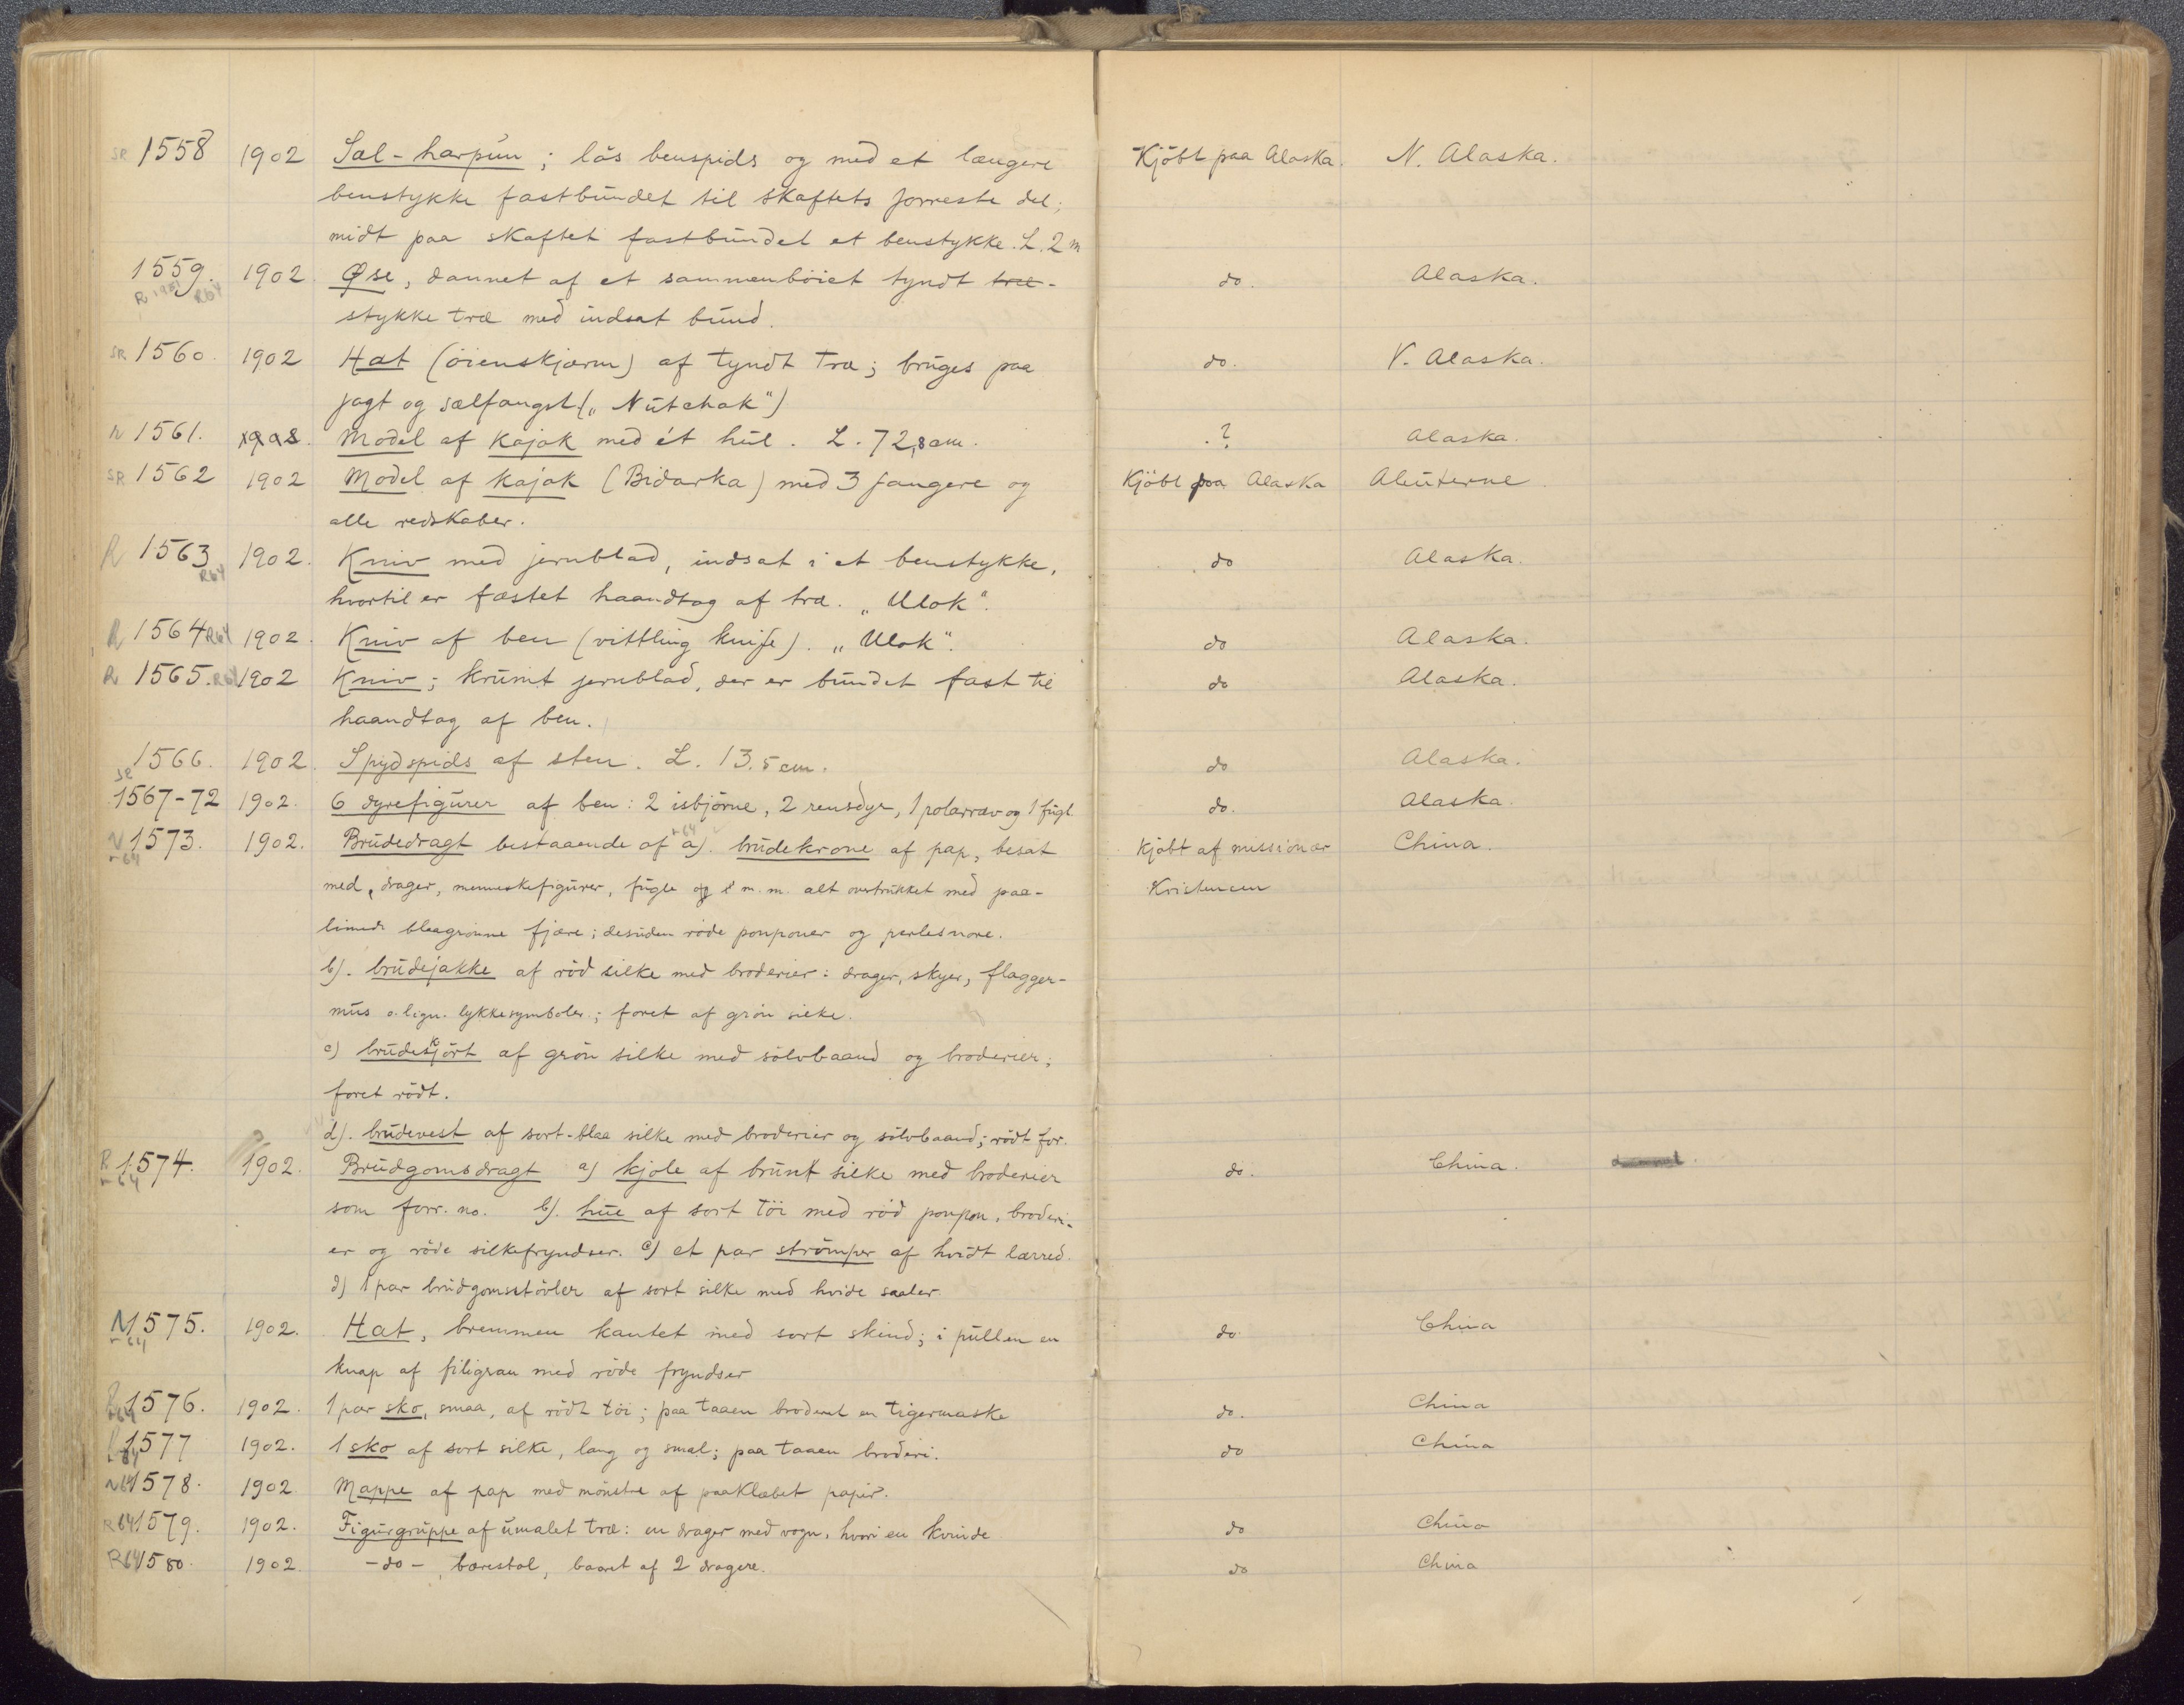 SR 1558 1902 Sæl-harpun; lös benspids og med et længere Kjöbt paa Alaska. N. Alaska.
benstykke fastbundet til skaftets forreste del;
midt paa skaftet fastbundet et benstykke. L. 2 m
1559. 1902. Øse, dannet af et sammenböiet tyndt træ- do. Alaska.
R 1951 R64
stykke træ med indsat bund.
SR 1560. 1902 Hat (öienskjærm) af tyndt træ; bruges paa do. V. Alaska.
jagt og sælfangst („Nutchak")
1561. Model af kajak med ét hul. L. 72,8 cm. ? Alaska.
SR 1562 1902 Model af kajak (Bidarka) med 3 fangere og Kjöbt paa Alaska Aleuterne.
alle redskaber.
R 1563 R64 1902. Kniv med jernblad, indsat i et benstykke, do Alaska.
hvortil er fæstet haandtag af træ. „Ulok".
R 1564 R64 1902. Kniv af ben (vittling knife). „Ulok". do Alaska.
R 1565. R64 1902 Kniv; krumt jernblad, der er bundet fast til do Alaska.
haandtag af ben.
1566. 1902. Spydspids af sten. L. 13.5 cm. do Alaska.
SR
1567-72 1902. 6 dyrefigurer af ben: 2 isbjörne, 2 rensdyr, 1 polarræv og 1 fugl. do. Alaska.
1573. 1902. Brudedragt bestaaende af a). brudekrone af pap, besat Kjöbt af missionær China.
med, drager, menneskefigurer, fugle m. m. alt overtrukket med paa- Kristensen
limede blaagrönne fjære; desuden röde ponponer og perlesnore.
b). brudejakke af röd silke med broderier: drager, skyer, flagger-
mus o. lign. lykkesymboler; foret af grön silke.
c) brudeskjört af grön silke med sölvbaand og broderier;
foret rödt.
d). brudevest af sort-blaa silke med broderier og sölvbaand; rödt for.
R 1574. 1902. Brudgomsdragt a) kjole af brunt silke med broderier do. China.
som forr. no. b). hue af sort töi med röd ponpon, broderi-
er og röde silkefryndser. c) et par strömper af hvidt lærred.
d) 1 par brudgomsstövler af sort silke med hvide saaler.
1575. 1902. Hat, bremmen kantet med sort skind; i pullen en do. China
knap af filigran med röde fryndser
1576. 1902. 1 par sko, smaa, af rödt töi; paa taaen broderet en tigermaske do. China
1577 1902. 1 sko af sort silke, lang og smal; paa taaen broderi. do China
1578. 1902 Mappe af pap med mönstre af paaklæbet papir.
R64 1579. 1902. Figurgruppe af umalet træ: en drager med vogn, hvori en kvinde do China
R64 1580. 1902. -do-, bærestol, baaret af 2 dragere. do China